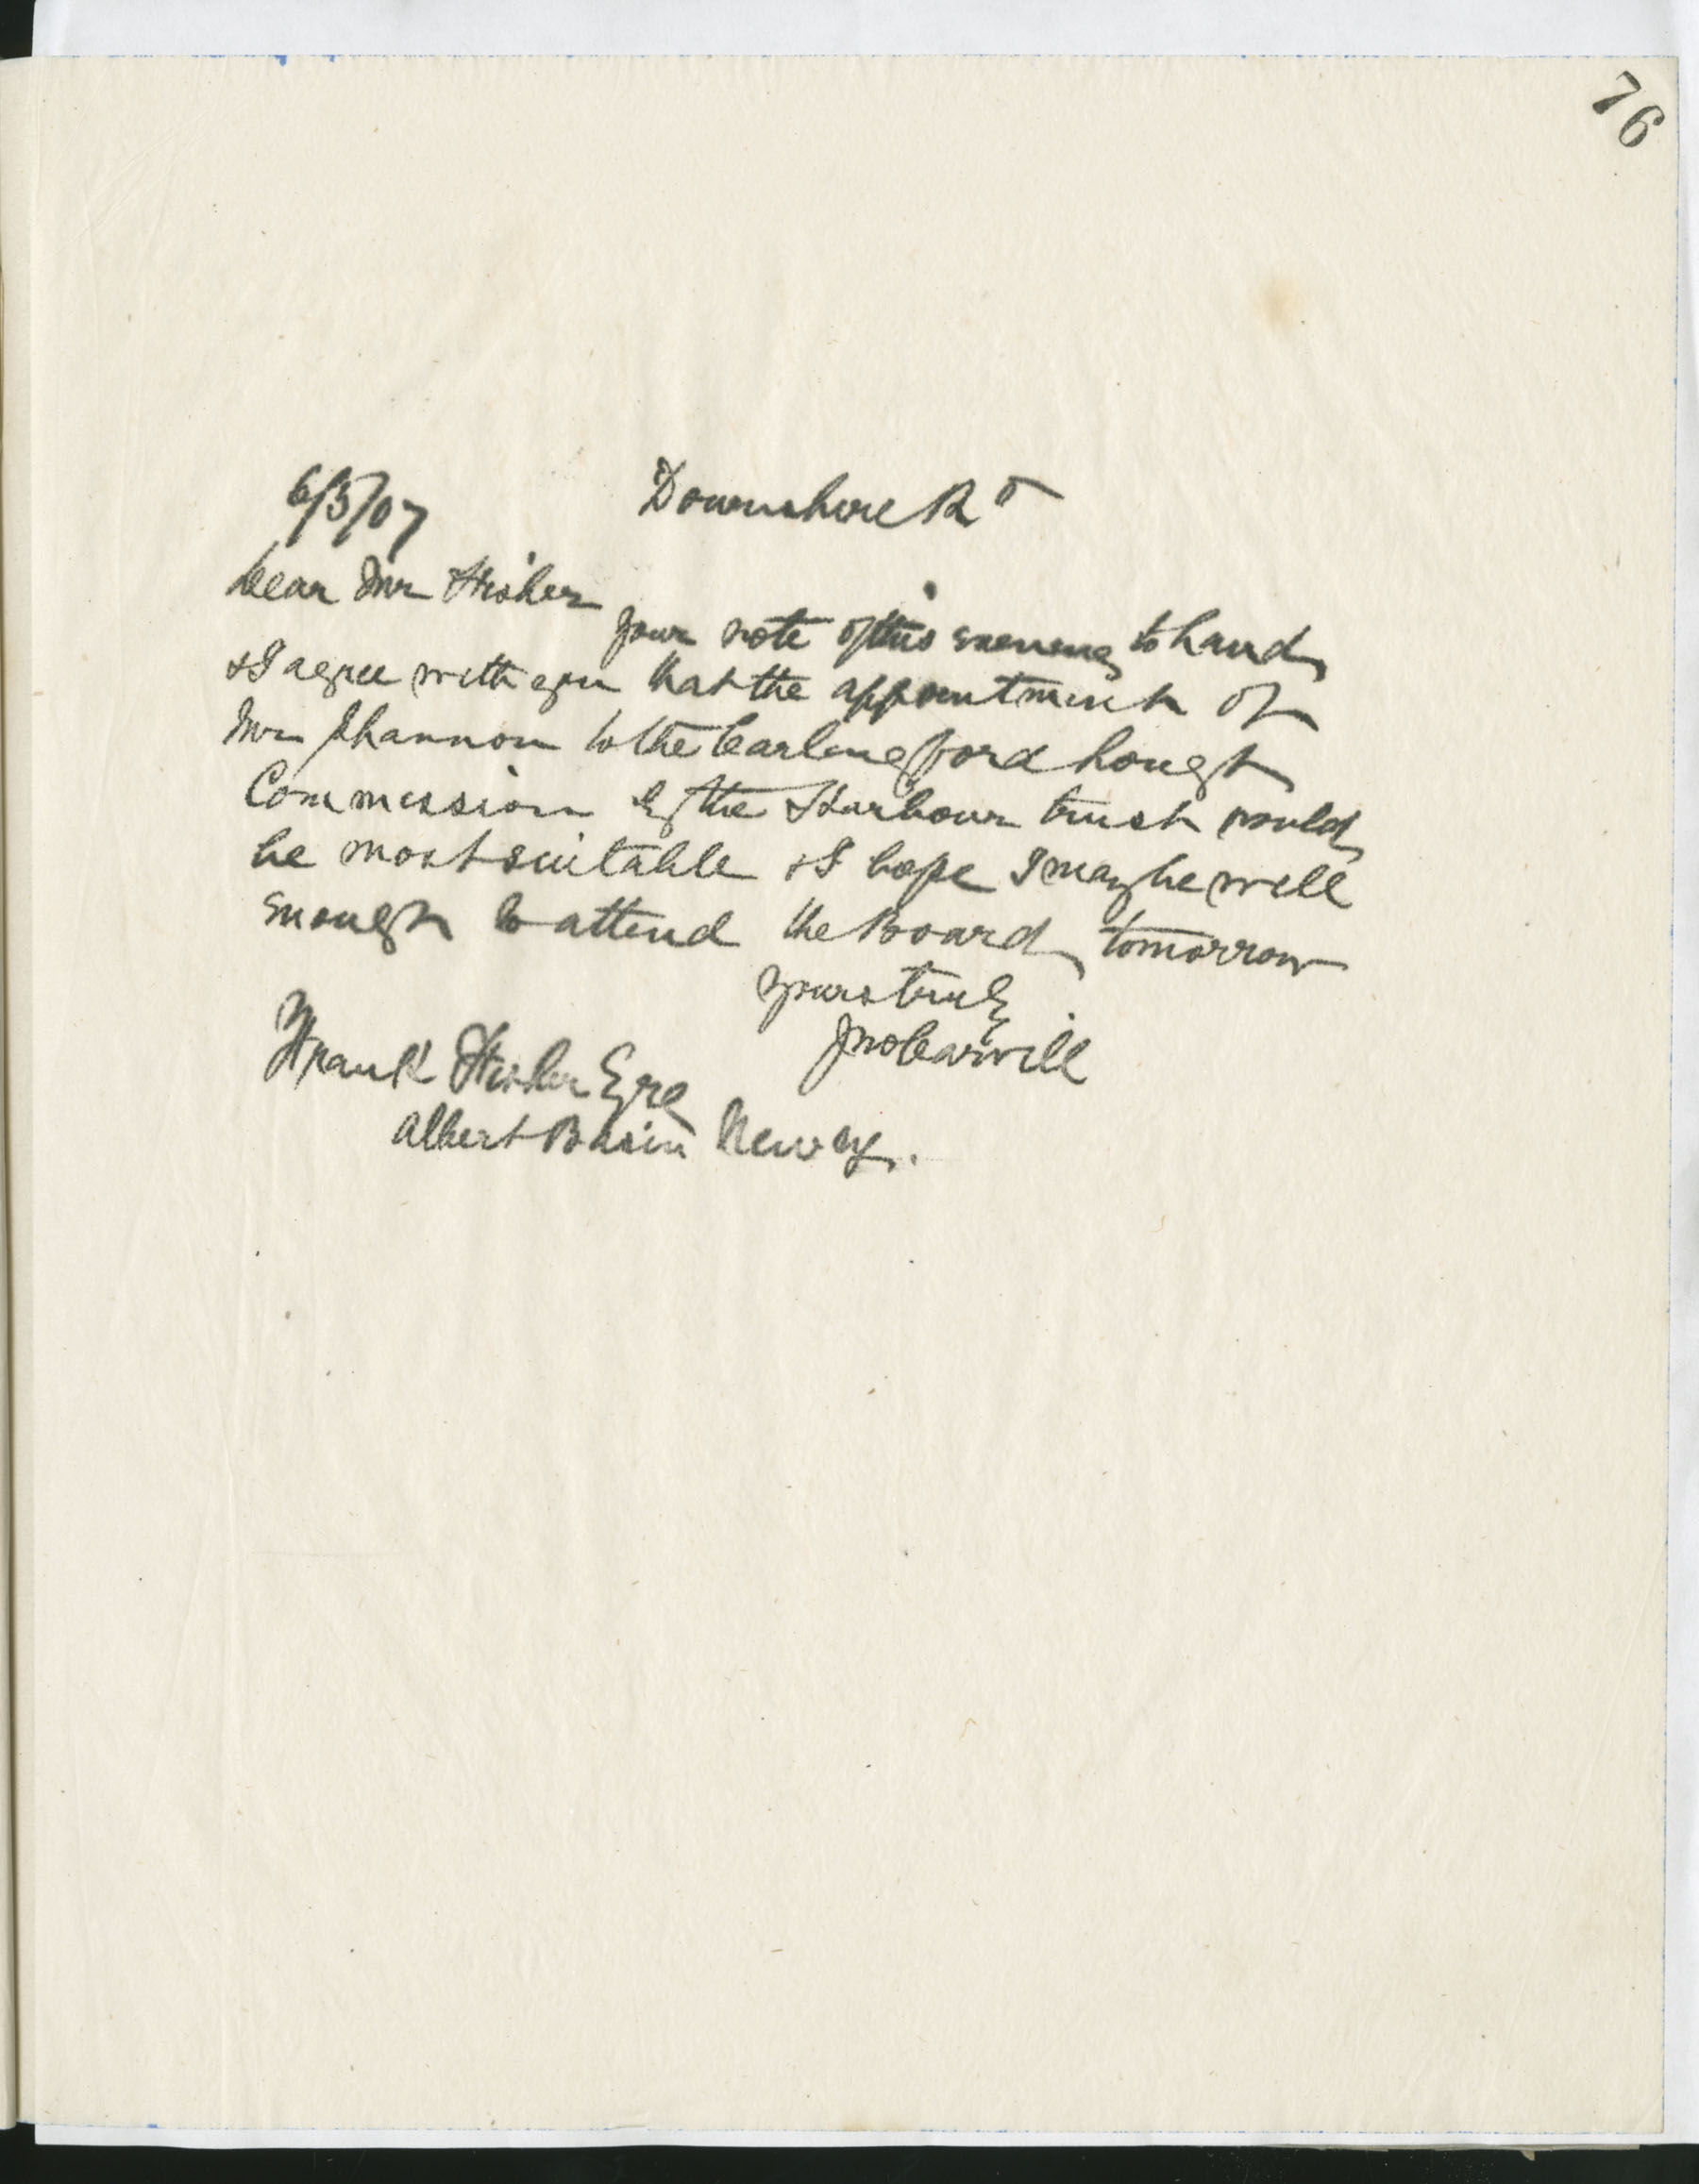 76
6/5/07 Downshire Rd
Dear Mr Fisher
your note of this evening to hand
& I agree with you that the appointment of
Mr Shannon to the Carlingford Lough
Commission by the Harbour trust would
be most suitable & I hope I may be well
enough to attend the Board tomorrow
yours truly
Jno Carvill
Frank Fisher Esre
Albert Basin Newry.